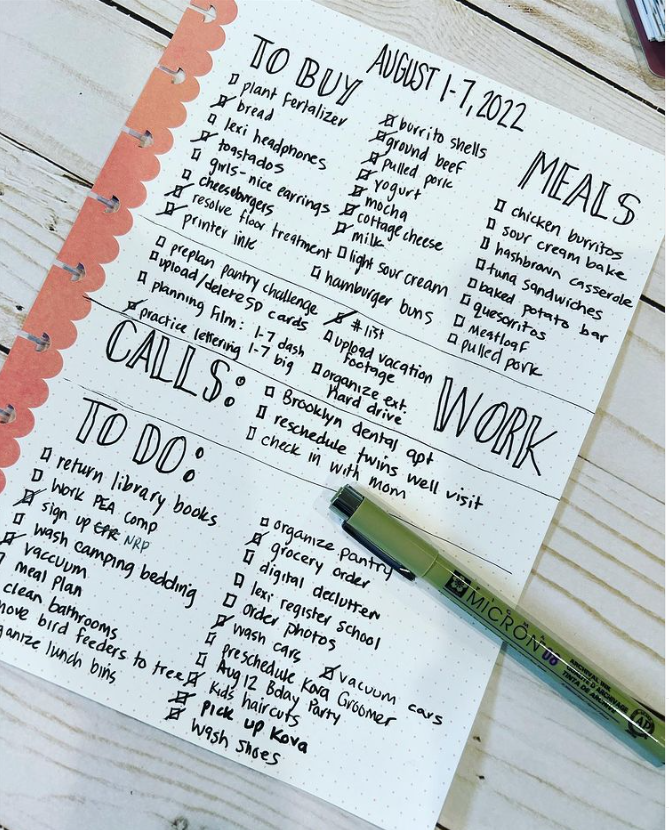 AUGUST 1-7, 2022
TO BUY
plant fertalizer
bread
lexi headphones
tostados
girls-nice earrings
cheeseburgers
resolve floor treatment
printer ink
burrito shells
ground beef
pulled pork
yogurt
mocha
cottage cheese
milk
light sour cream
hamburger buns
MEALS
chicken burritos
sour cream bake
hashbrown casserole
tuna sandwiches
baked potato bar
quesorritos
meatloaf
pulled pork
preplan pantry challenge
upload/delete SD cards
planning film: 1-7 dash
practice lettering 1-7 big
# list
upload vacation
footage
organize ext.
hard drive
WORK
CALLS:
Brooklyn dental apt
reschedule twins well visit
check in with mom
TO DO:
return library books
work PEA comp
sign up CPR NRP
wash camping bedding
vacuum
meal plan
clean bathrooms
move bird feeders to tree
ganize lunch bins
organize pantry
grocery order
digital declutter
lexi register school
order photos
wash cars
vacuum cars
preschedule Kova Groomer
Aug 12 Bday Party
kids haircuts
pick up Kova
wash shoes
MICRON
ARCHIVAL INK
TINTA DE ARCHIVO
AP